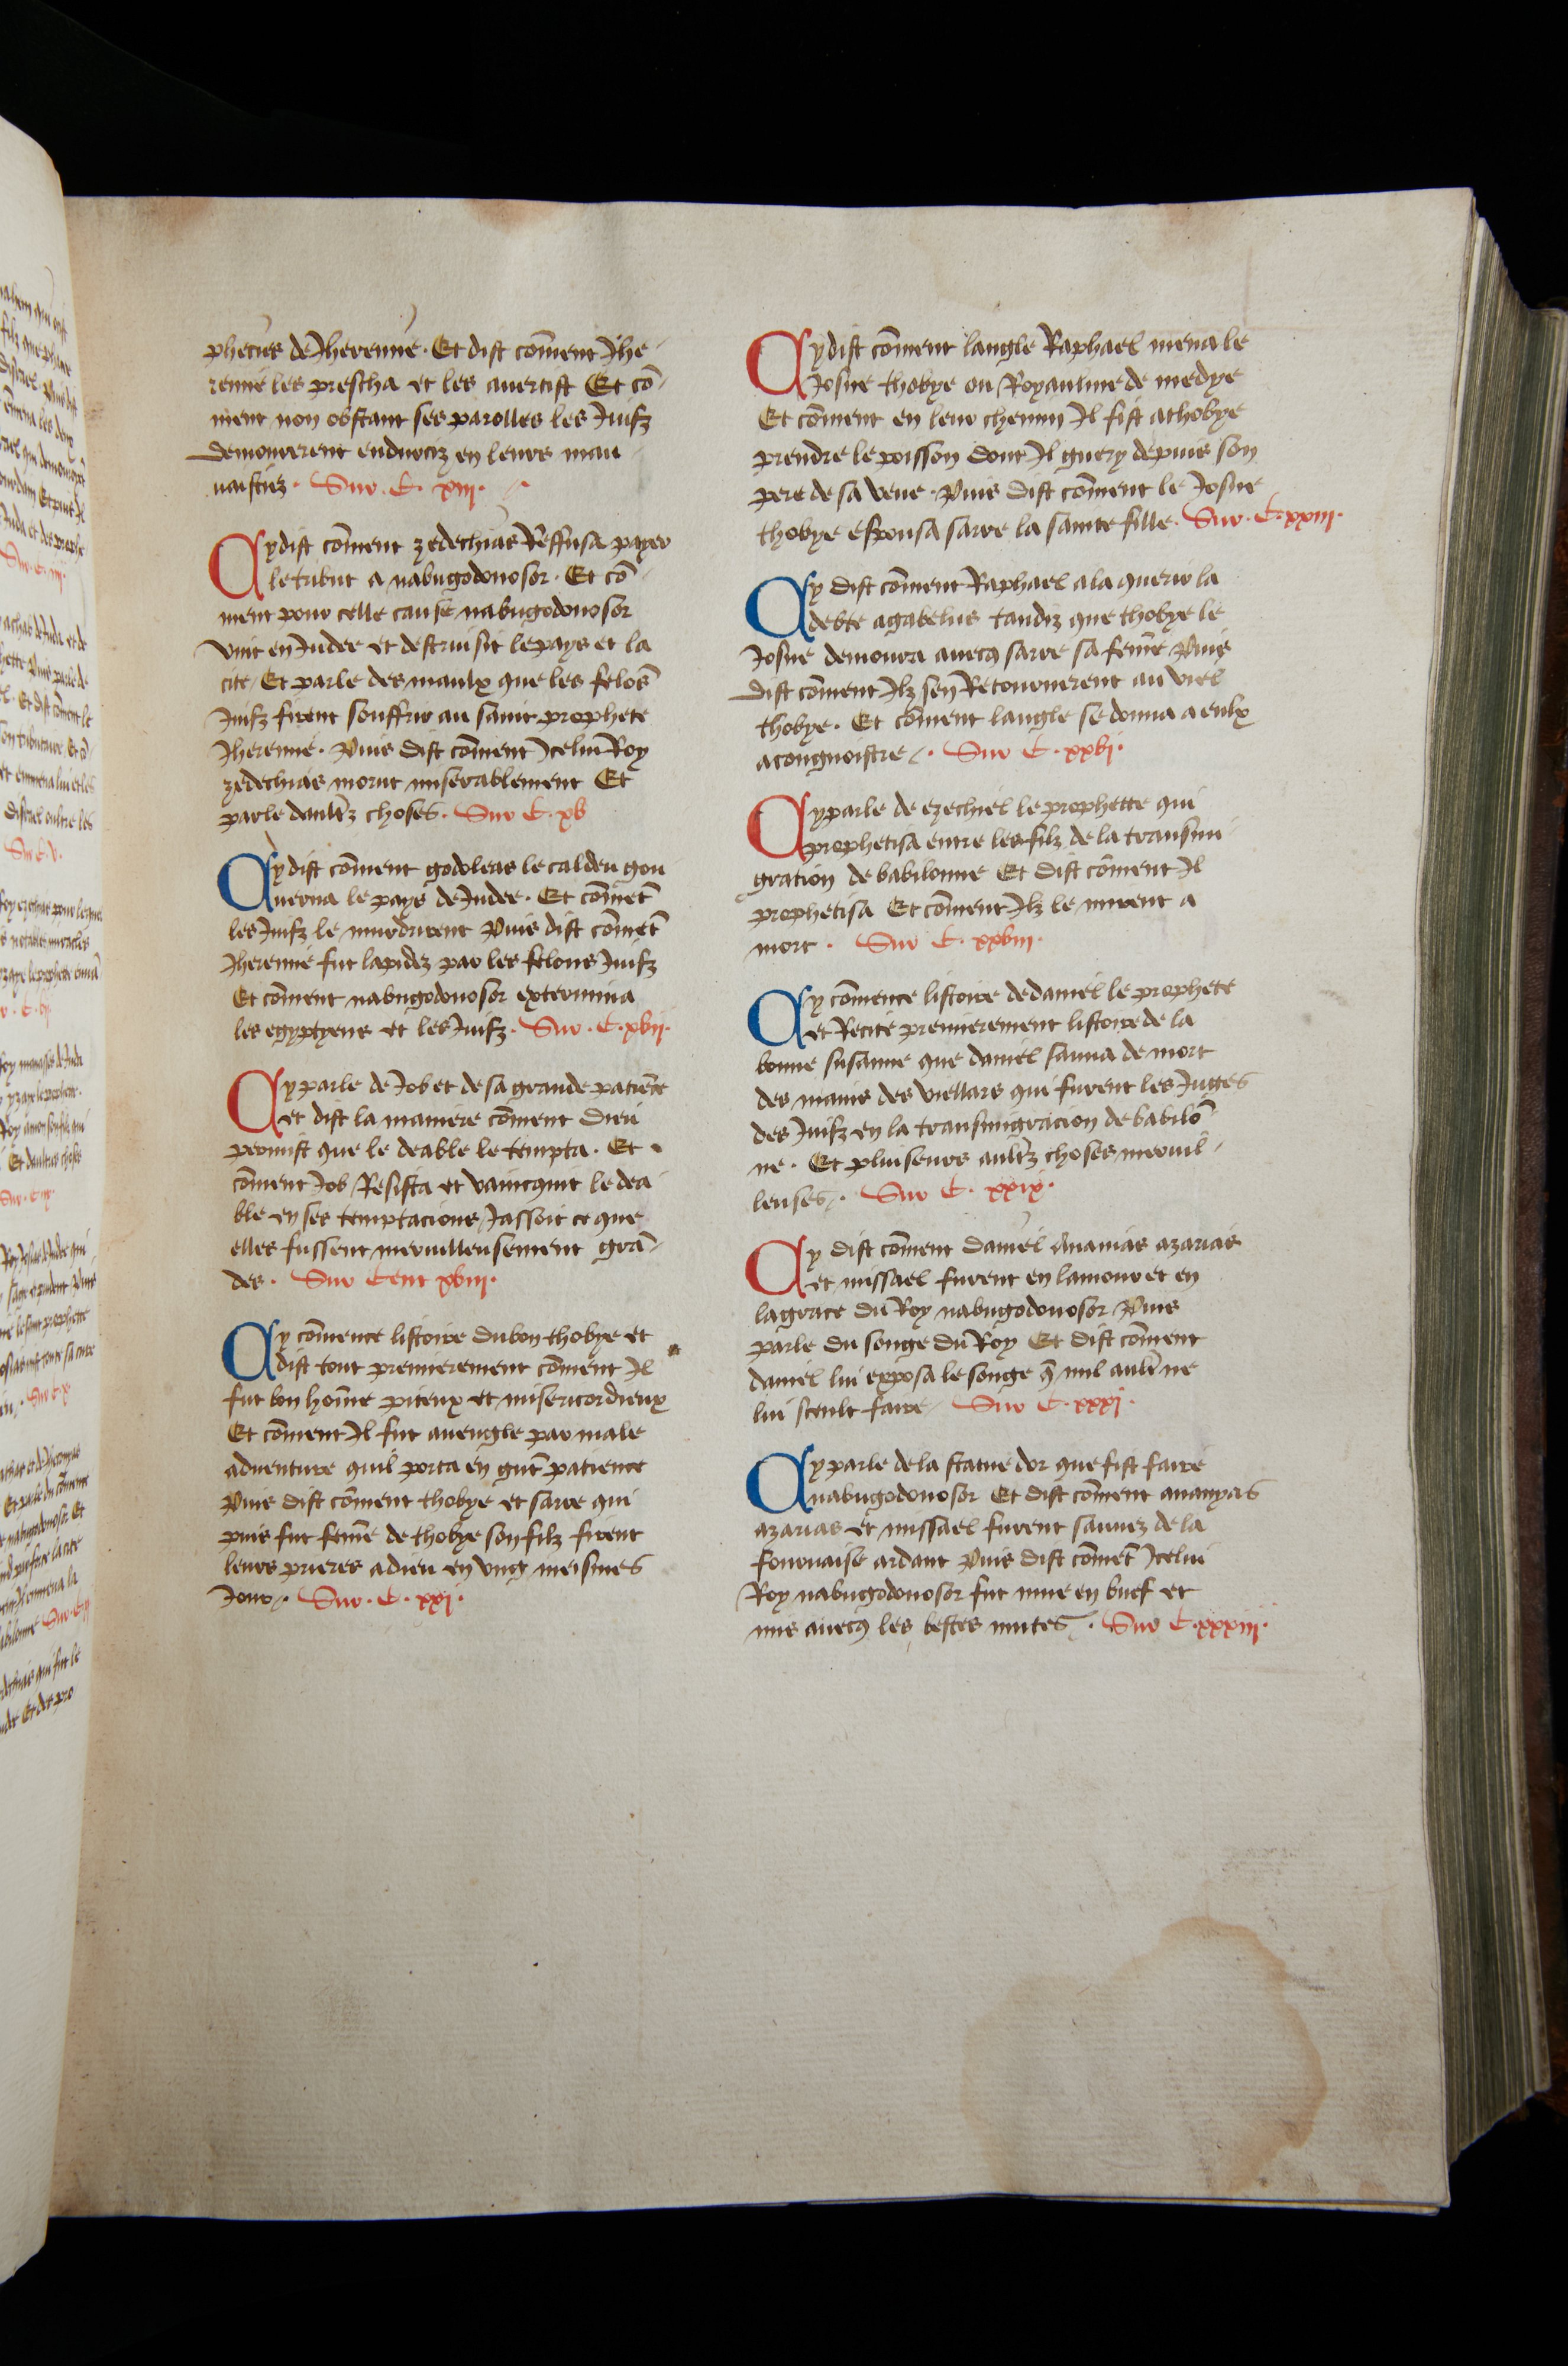 phecies de Jheremie. Et dist cōment Jhe
remie les prescha et les auertist Et cō
ment non obstant ses parolles les Juifz
demourerent endurciz en leurs mau
uaistiez. Sur. C. xiii.
Cy dist cōment zedechias Reffusa payer
le tribut a nabugodonosor. Et cō
ment pour celle cause nabugodonosor
vint en Judee et destruisit le pays et la
cite / Et parle des maulx que les felōs
Juifz firent souffrir au saint prophete
Jheremie. Puis dist cōment Icelui Roy
zedechias morut miserablement Et
parle daultz choses. Sur C. xv
Cy dist cōment godoleas le caldeu gou
uerna le pays de Judee. Et cōmēt
les Juifz le murdrirent Puis dist cōmēt
Jheremie fut lapidez par les felons Juifz
Et cōment nabugodonosor extermina
les egyptyens et les Juifz. Sur. C. xvii.
Cy parle de Job et de sa grande patiēce
et dist la maniere cōment Dieu
promist que le deable le tempta. Et
cōment Job Resista et vaincquit le dea
ble en ses temptacions / Jassoit ce que
elles fussent merueilleusement grā
des. Sur Cent xviii.
Cy cōmence listoire du bon thobye et
dist tout premierement cōment Il
fut bon hōme piteux et misericordieux
Et cōment Il fut aueugle par male
aduenture quil porta en gnt patience
Puis dist cōment thobye et sarre qui
puis fut fēme de thobye son filz firent
leurs prieres a dieu en vng meismes
Jour. Sur. C. xxi.
Cy dist cōment langle Raphael mena le
Josne thobye ou Royaulme de medye
Et cōment en leur chemin Il fist a thobye
prendre le poisson dont Il guery depuis son
pere de sa veue. Puis dist cōment le Josne
thobye espousa sarre la sainte fille. Sur. C. xxiii.
Cy dist cōment Raphael ala querir la
debte a gabelus tandiz que thobye le
Josne demoura auecq sarre sa fēme Puis
dist cōment Ilz sen Retournerent au viel
thobye. Et cōment langle se donna a eulx
a congnoistre. Sur C. xxvi.
Cy parle de ezechiel le prophette qui
prophetisa entre les filz de la transmi
gration de babilonne Et dist cōment Il
prophetisa Et cōment Ilz le mirent a
mort. Sur C. xxviii.
Cy cōmence listoire de daniel le prophete
et Recite premierement listoire de la
bonne susanne que daniel sauua de mort
des mains des viellars qui furent les Juges
des Juifz en la transmigracion de babilō
ne. Et pluiseurs aultz choses meruil
leuses. Sur C. xxix.
Cy dist cōment daniel Ananias azarias
et missael furent en lamour et en
la grace du Roy nabugodonosor Puis
parle du songe du Roy Et dist cōment
daniel lui exposa le songe q̄ nul aultr̄ ne
lui sceult faire Sur C. xxxi.
Cy parle de la statue dor que fist faire
nabugodonosor Et dist cōment ananyas
azarias et missael furent sauuez de la
fournaise ardant Puis dist cōmēt Icelui
Roy nabugodonosor fut mue en buef et
mis auecq les bestes mutes. Sur C. xxxiii.